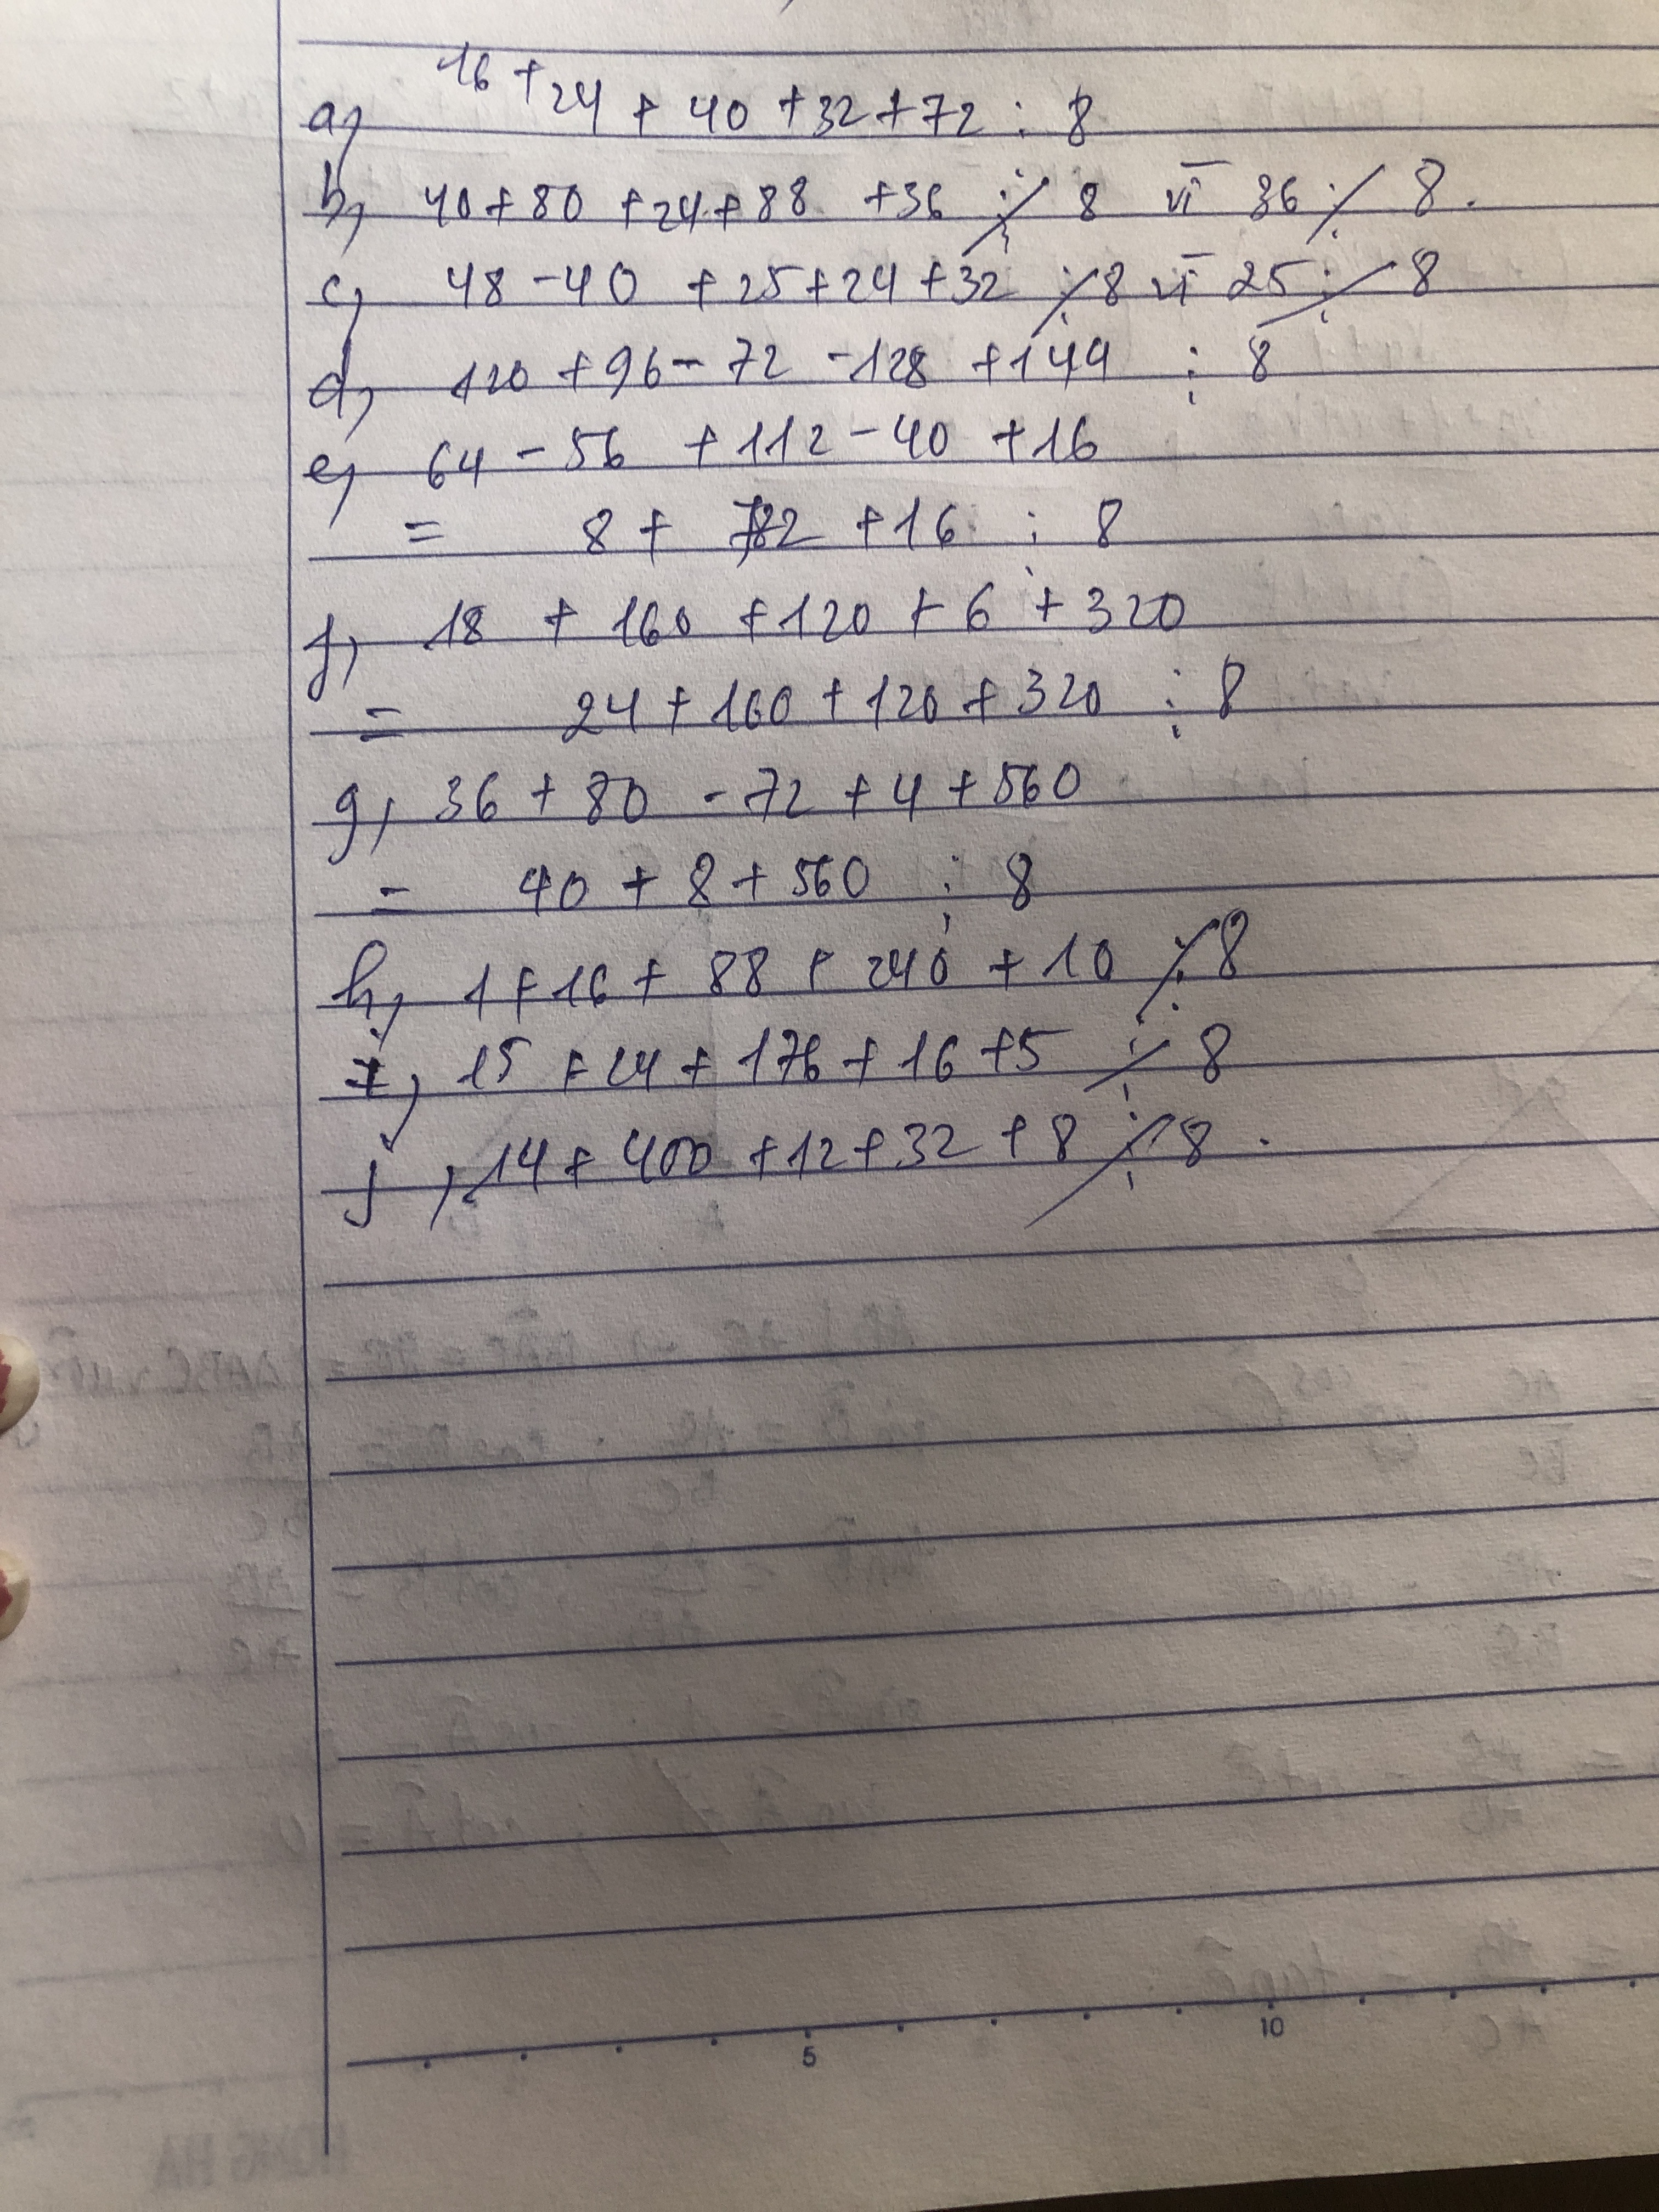 a, 16 + 24 + 40 + 32 + 72 ⋮ 8
b, 40 + 80 + 24 + 88 + 36 ⋮̸ 8 vì 36 ⋮̸ 8.
c, 48 - 40 + 25 + 24 + 32 ⋮̸ 8 vì 25 ⋮̸ 8
d, 120 + 96 - 72 - 128 + 144 ⋮ 8
e, 64 - 56 + 112 - 40 + 16
= 8 + 72 + 16 ⋮ 8
f, 18 + 160 + 120 + 6 + 320
= 24 + 160 + 120 + 320 ⋮ 8
g, 36 + 80 - 72 + 4 + 560
= 40 + 8 + 560 ⋮ 8
h, 1 + 16 + 88 + 240 + 10 ⋮̸ 8
i, 15 + 24 + 176 + 16 + 5 ⋮̸ 8
j, 14 + 400 + 12 + 32 + 8 ⋮̸ 8.
5 10